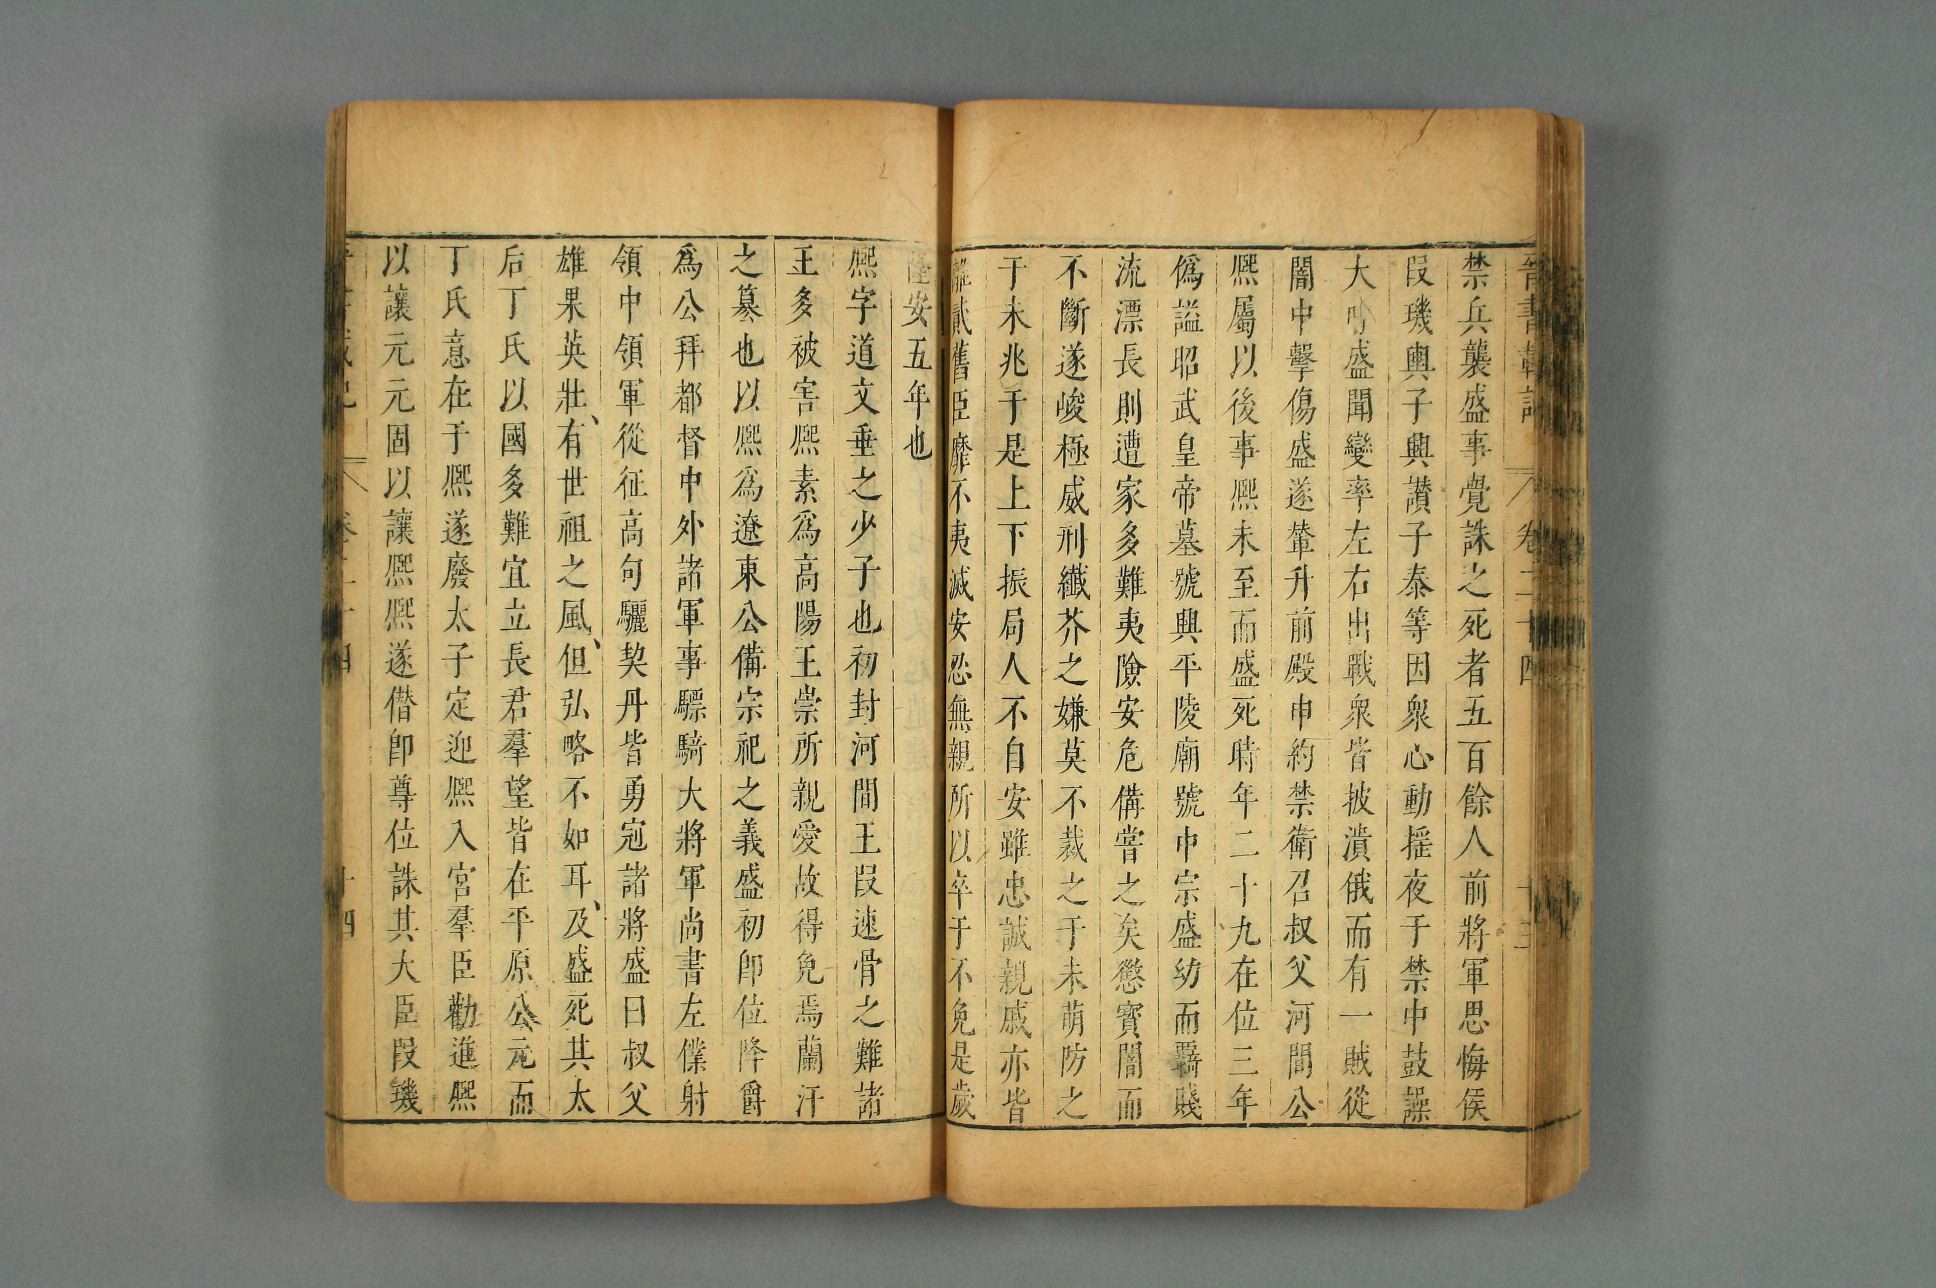 晉書載記 卷二十四 十三
禁兵襲盛事覺誅之死者五百餘人前將軍思悔侯
段璣輿子興讃子泰等因衆心動搖夜于禁中鼓譟
大呼盛聞變率左右出戰衆皆披潰俄而有一賊從
闇中擊傷盛遂輦升前殿申約禁衛召叔父河間公
熈屬以後事熈未至而盛死時年二十九在位三年
僞謚昭武皇帝墓號興平陵廟號中宗盛幼而羇賤
流漂長則遭家多難夷險安危備嘗之矣懲寳闇而
不斷遂峻極威刑纖芥之嫌莫不裁之于未萌防之
于未兆于是上下振局人不自安雖忠誠親戚亦皆
離貳舊臣靡不夷滅安忍無親所以卒于不免是歲
隆安五年也
熈字道文垂之少子也初封河間王段速骨之難諸
王多被害熈素爲高陽王崇所親愛故得免焉蘭汗
之簒也以熈爲遼東公備宗祀之義盛初卽位降爵
爲公拜都督中外諸軍事驃騎大將軍尚書左僕射
領中領軍從征高句驪契丹皆勇冠諸將盛曰叔父
雄果英壯、有世祖之風、但弘略不如耳、及盛死其太
后丁氏以國多難宜立長君羣望皆在平原公元而
丁氏意在于熈遂廢太子定迎熈入宮羣臣勸進熈
以讓元元固以讓熈熈遂僭卽尊位誅其大臣段璣
晉書載記 卷二十四 十四